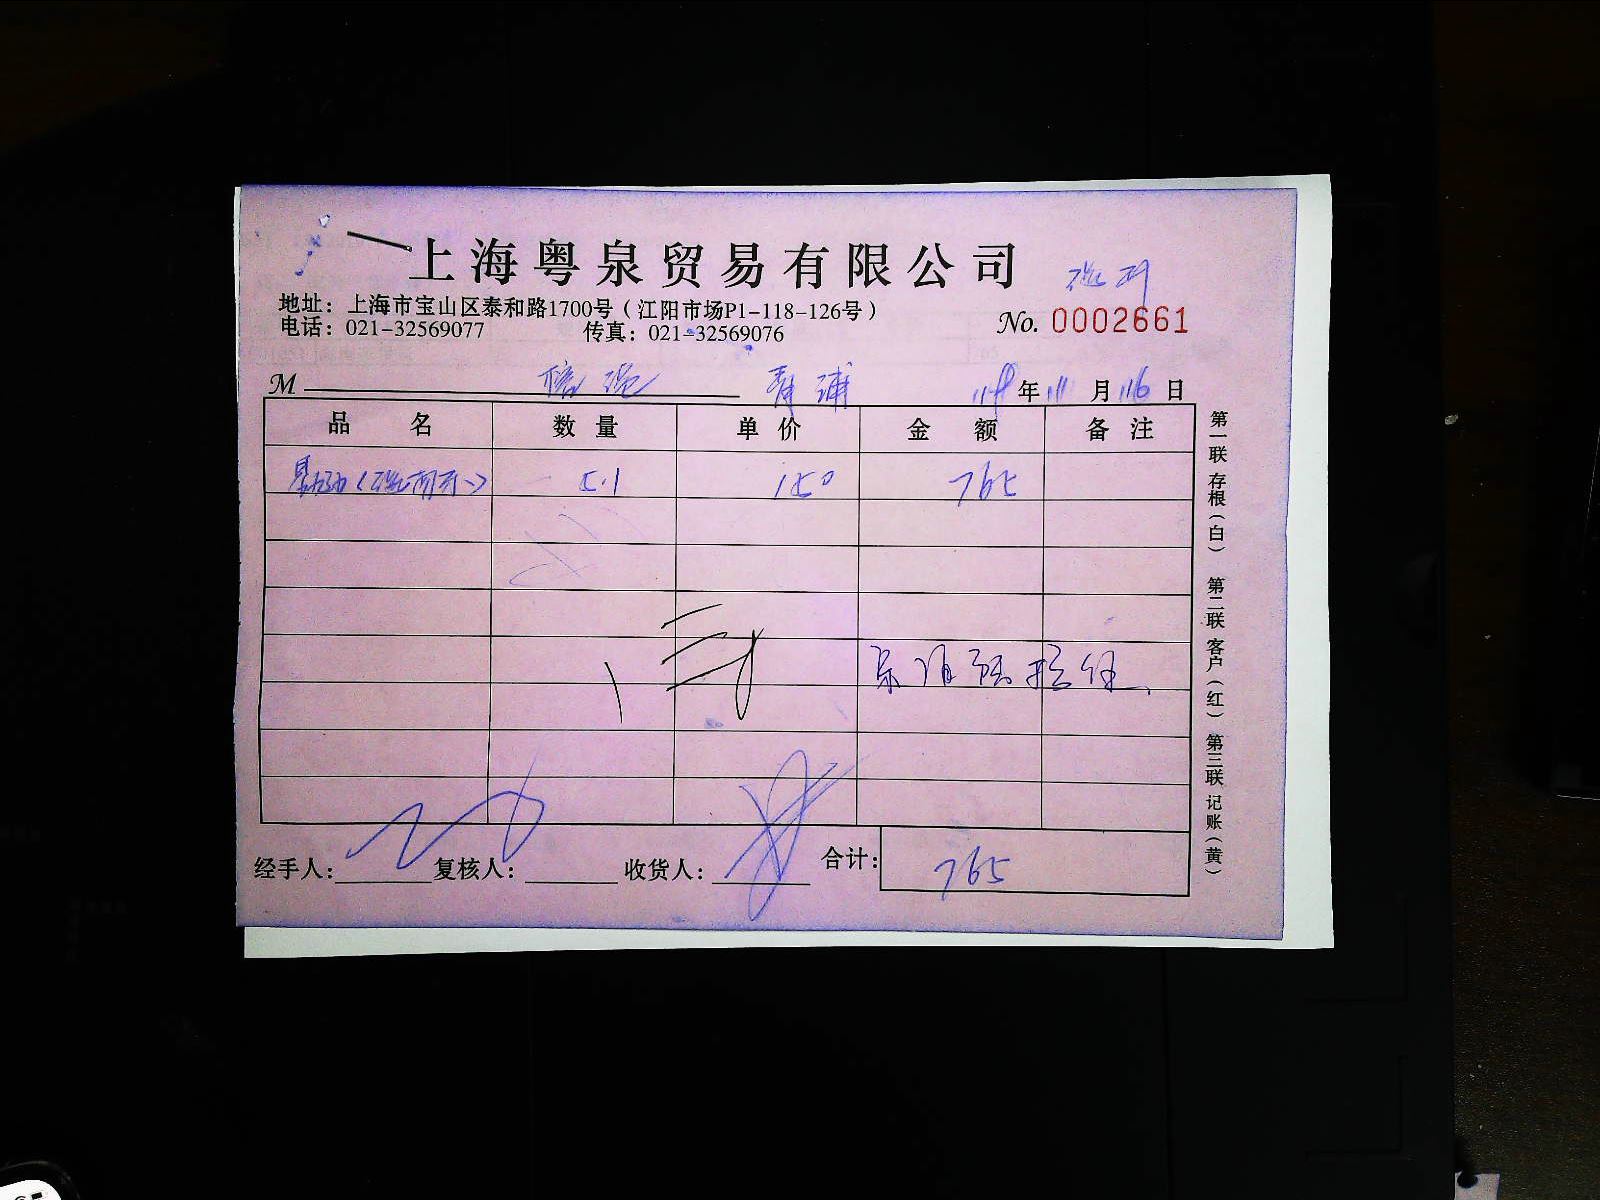 上海粤泉贸易有限公司
地址：上海市宝山区泰和路1700号（江阳市场P1-118-126号）
电话：021-32569077 传真：021-32569076
No. 0002661
M 青浦 年 月 日
品名 数量 单价 金额 备注
5.1 150 765
柒佰陆拾伍
经手人： 复核人： 收货人： 合计： 765
第一联 存根（白） 第二联 客户（红） 第三联 记账（黄）